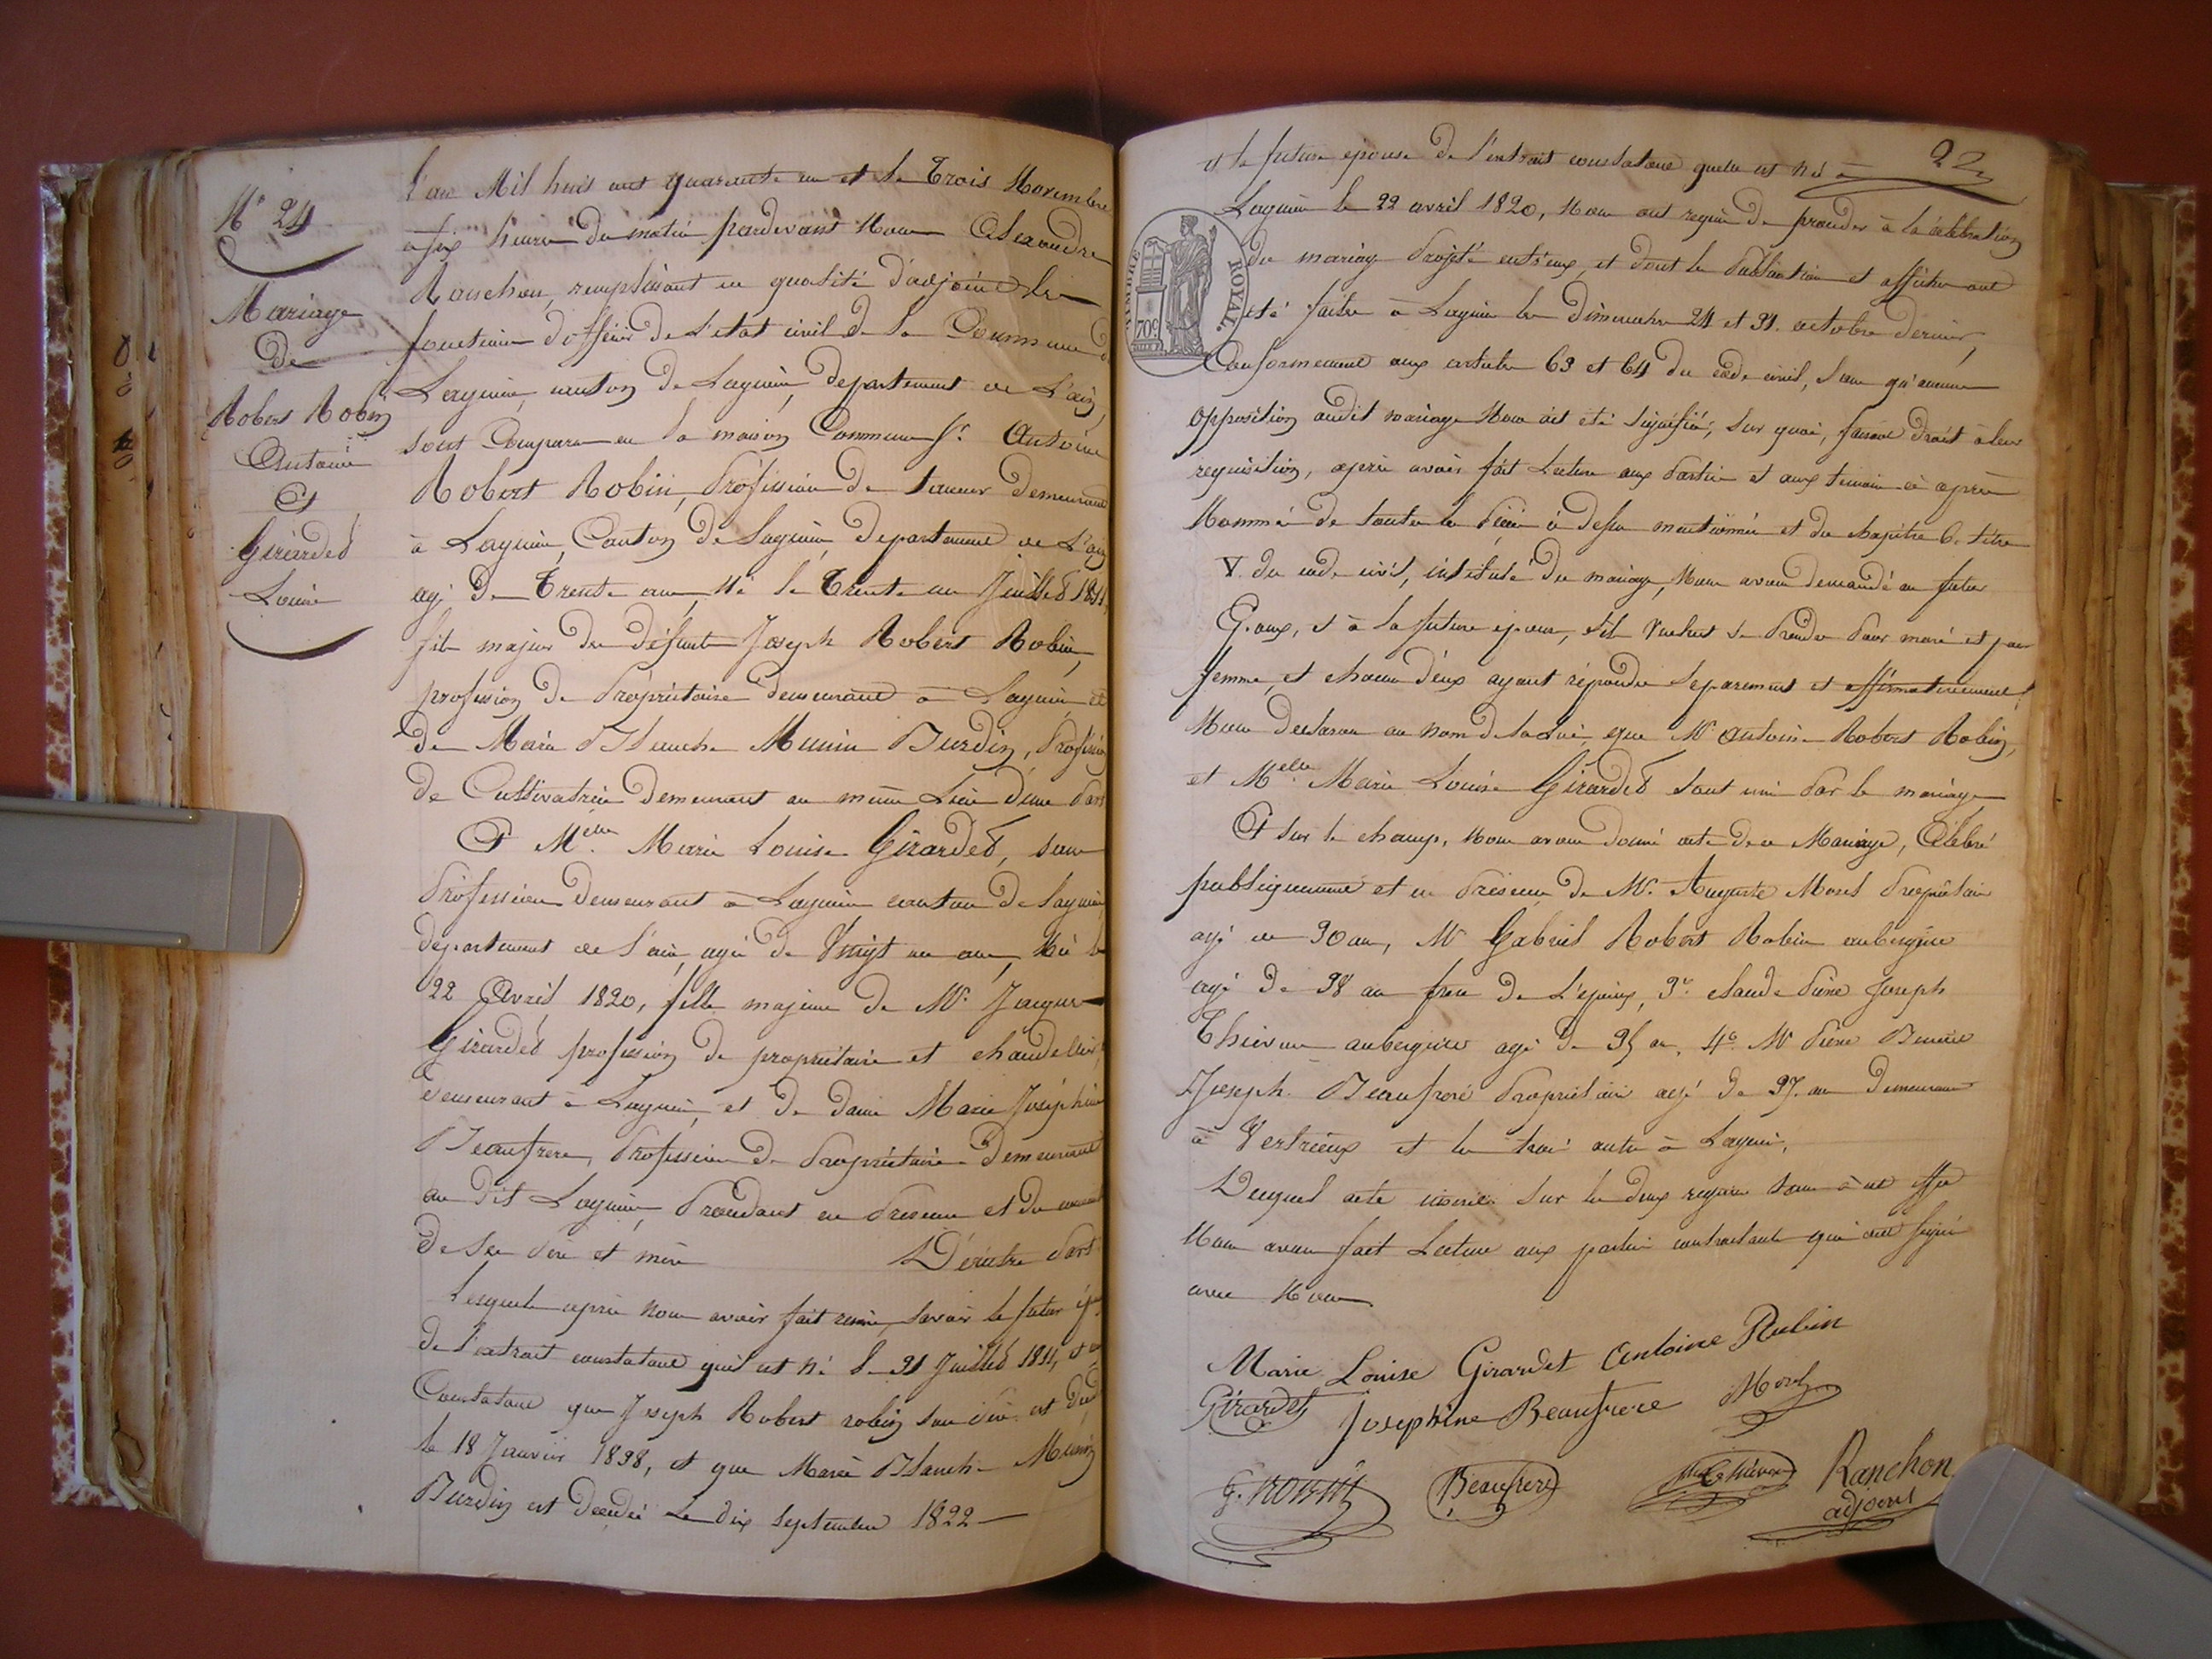 N° 24
Mariage
De
Robert Robin
Antoine
Et
Girardet
Louise
L'an Mil huit cent quarante un et le Trois Novembre
à six heures du matin pardevant Nous Alexandre
Ranchon, remplissant en qualité d'adjoint les
fonctions d'officier de L'etat civil de la Commune de
Lagnieu, canton de Lagnieu, departement de L'ain,
sont Comparu en la maison Commune Sr. Antoine
Robert Robin, Profession de taneur demeurant
à Lagnieu, Canton de Lagnieu, Departement de L'ain
agé De Trente ans, Né le Trente un Juillet 1811,
fils majeur de défunt Joseph Robert Robin,
profession de Propriétaire demeurant à Lagnieu et
de Marie Blanche Munin Burdin, Profession
de Cultivatrice Demeurant au même Lieu D'une Part
Et Melle. Marie Louise Girardet, sans
Profession demeurant à Lagnieu canton de Lagnieu,
département de l'ain, agée de Vingt un ans, Née le
22 Avril 1820, fille majeure de Mr. Jacques
Girardet profession de propriétaire et chandellier,
demeurant à Lagnieu, et de dame Marie Joséphine
Beaufrere, Profession de Propriétaire Demeurant
au dit Lagnieu, Procedant en Presence et du
de ses Père et mère D'autre Part
Lesquels après nous avoir fait remis, savoir le futur
de l'extrait constatant qu'il est né le 31 Juillet 1811, et
Constatant que Joseph Robert robin son Père est
le 18 Janvier 1838, et que Marie Blanche Munin
Burdin est Decedée Le dix Septembre 1822
22
et la future épouse de l'extrait constatant quelle est née à
Lagnieu le 22 avril 1820, Nous ont requis de proceder à la célébration
du mariage Projeté entr'eux, et dont les Publications et affiches ont
été faites à Lagnieu les Dimanches 24 et 31. octobre dernier,
Conformement aux articles 63 et 64 du code civil, sans qu'aucune
opposition audit mariage Nous ait été signifiée; sur quoi, faisant droit à leur
requisition, après avoir fait Lecture aux Parties et aux temoins ci après
Nommés de toutes les Pièces ci dessus mentionnées et du chapitre 6. titre
V. du code civil, intitulé du mariage, Nous avons demandé au futur
Epoux, et à la future épouse, s'ils veulent se Prendre Pour mari et pour
femme, et chacun d'eux ayant répondu separement et affirmativement,
Nous declarons au nom de la Loi, que Mr Antoine Robert Robin,
et Melle. Marie Louise Girardet sont unis Par le mariage
Et sur le champ, Nous avons donné acte de ce Mariage, Célébré
publiquement et en Présence de Mr. Auguste Morel Propriétaire
agé de 30 ans, Mr Gabriel Robert Robin aubergiste
agé de 38 ans frere de L'epoux, 3°. Claude Pierre Joseph
Thievon aubergiste agé de 35 ans, 4°. Mr Pierre
Joseph Beaufrere Propriétaire agé de 37. ans Demeurant
à Vertrieux et les trois autres à Lagnieu,
Duquel acte inscrit sur les deux registres tenus à cet effet
Nous avons fait Lecture aux parties contractantes qui ont signé
avec Nous
Marie Louise Girardet Antoine Robin
Girardet Josephine Beaufrere Morel
G. ROBIN Beaufrere Thievon Ranchon
adjoint
TIMBRE ROYAL.
70c